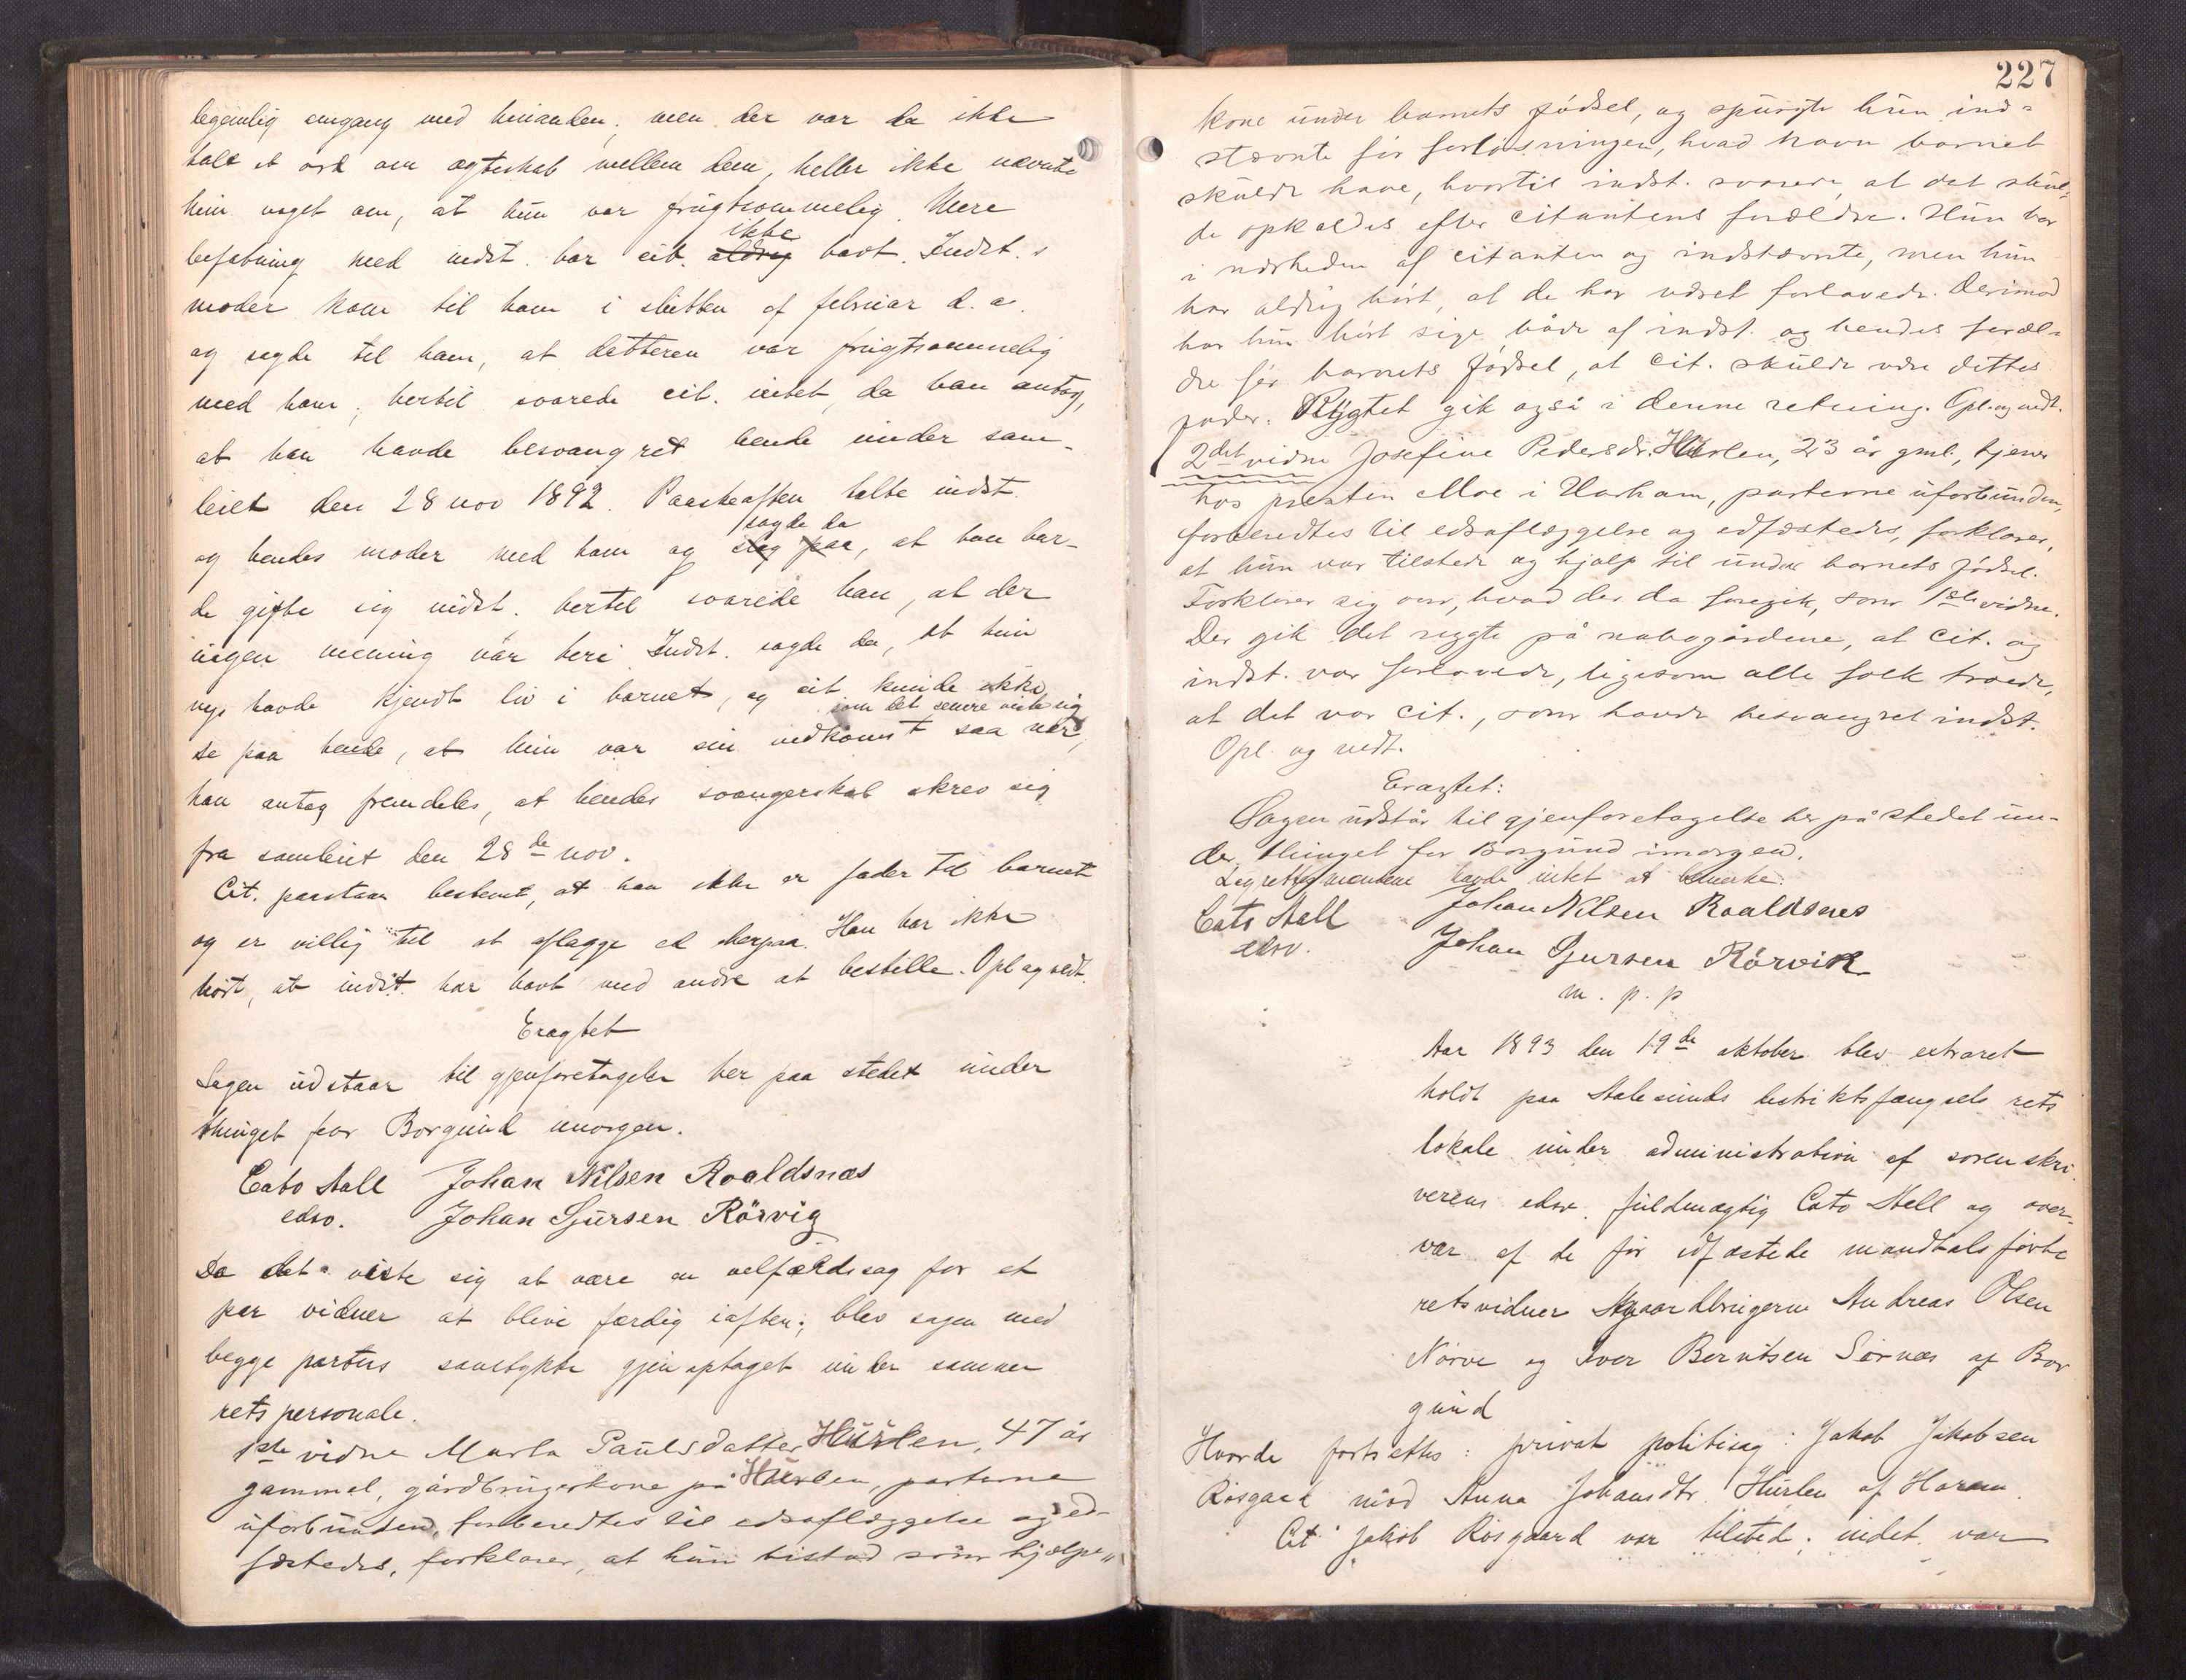 legemlig omgang med hinanden; men der var da ikke
talt et ord om ægteskab mellem dem, heller ikke nævnte
hun noget om, at hun var frugtsommelig. Mere
ikke
befatning med indst. har cit. aldrig havt. Indst.s
moder kom til ham i slutten af februar d. a.
og sagde til ham, at datteren var frugtsommelig
med ham; hertil svarede cit. intet, da han antog,
at han havde besvangret hende under sam-
leiet den 28 nov 1892. Paaskeaften talte indst.
sagde da
og hendes moder med ham og paa, at han bur-
de gifte sig indst. hertil svarede han, at der
ingen mening var heri. Indst. sagde da, at hun
nys havde kjendt liv i barnet, og cit. kunde ikke
som det senere viste sig
se paa hende, at hun var sin nedkomst saa nær,
han antog fremdeles, at hendes svangerskab skrev sig
fra samleiet den 28de nov.
Cit. paastaar bestemt, at han ikke er fader til barnet
og er villig til at aflægge ed derpaa. Han har ikke
hørt, at indst. har havt med andre at bestille. Opl og vedt.
Eragtet
Sagen udstaar til gjenforetagelse her paa stedet under
thinget for Borgund imorgen.
Cato Aall Johan Nilsen Roaldsnæs
edsv. Johan Sjursen Rörvig
Da det viste sig at være en velfærdssag for et
par vidner at blive færdig iaften, blev sagen med
begge parters samtykke gjenoptaget under samme
rets personale.
1ste vidne Marta Paulsdatter Hurlen, 47 år
gammel, gårdbrugerkone på Hurlen, parterne
uforbunden, forberedtes til edsaflæggelse og ed-
fæstedes, forklarer, at hun bistod som hjælpe„
227
kone under barnets fødsel, og spurgte hun ind-
stævnte før forløsningen, hvad navn barnet
skulde have, hvortil indst. svarede, at det skul-
de opkaldes efter citantens forældre. Hun bor
i nærheden af citanten og indstævnte, men hun
har aldrig hørt, at de har været forlovede. Derimod
har hun hørt sige både af indst. og hendes foræl-
dre før barnets fødsel, at cit. skulde være dettes
fader. Rygtet gik også i denne retning. Opl. og vedt.
2det vidne Josefine Pedersdr. Hurlen, 23 år gml., tjener
hos presten Moe i Harham, parterne uforbunden,
forberedtes til edsaflæggelse og edfæstedes, forklarer,
at hun var tilstede og hjalp til under barnets fødsel.
Forklarer sig om, hvad der da foregik, som 1ste vidne.
Der gik det rygte på nabogårdene, at cit. og
indst. var forlovede, ligesom alle folk troede,
at det var cit., som havde besvangret indst.
Opl. og vedt.
Eragtet:
Sagen udstår til gjenforetagelse her på stedet un-
der thinget for Borgund imorgen.
Lagrettesmændene havde intet at bemerke.
Cato Aall Johan Nilsen Roaldsnes
edsv. Johan Sjursen Rörvik
m. p. p
Aar 1893 den 19de oktober blev extraret
holdt paa Aalesunds distriktsfængsels rets
lokale under administration af sorenskri
verens edsv. fuldmægtig Cato Aall og over-
vær af de før edfæstede mandtalsførte
retsvidner gaardbrugerne Andreas Olsen
Nørve og Iver Berntsen Sørnæs af Bor
gund
Hvorda fortsattes: privat politisag: Jakob Jakobsen
Røsgaard mod Anna Johansdtr. Hurlen af Haram.
Cit. Jakob Røsgaard var tilsted; indst. var